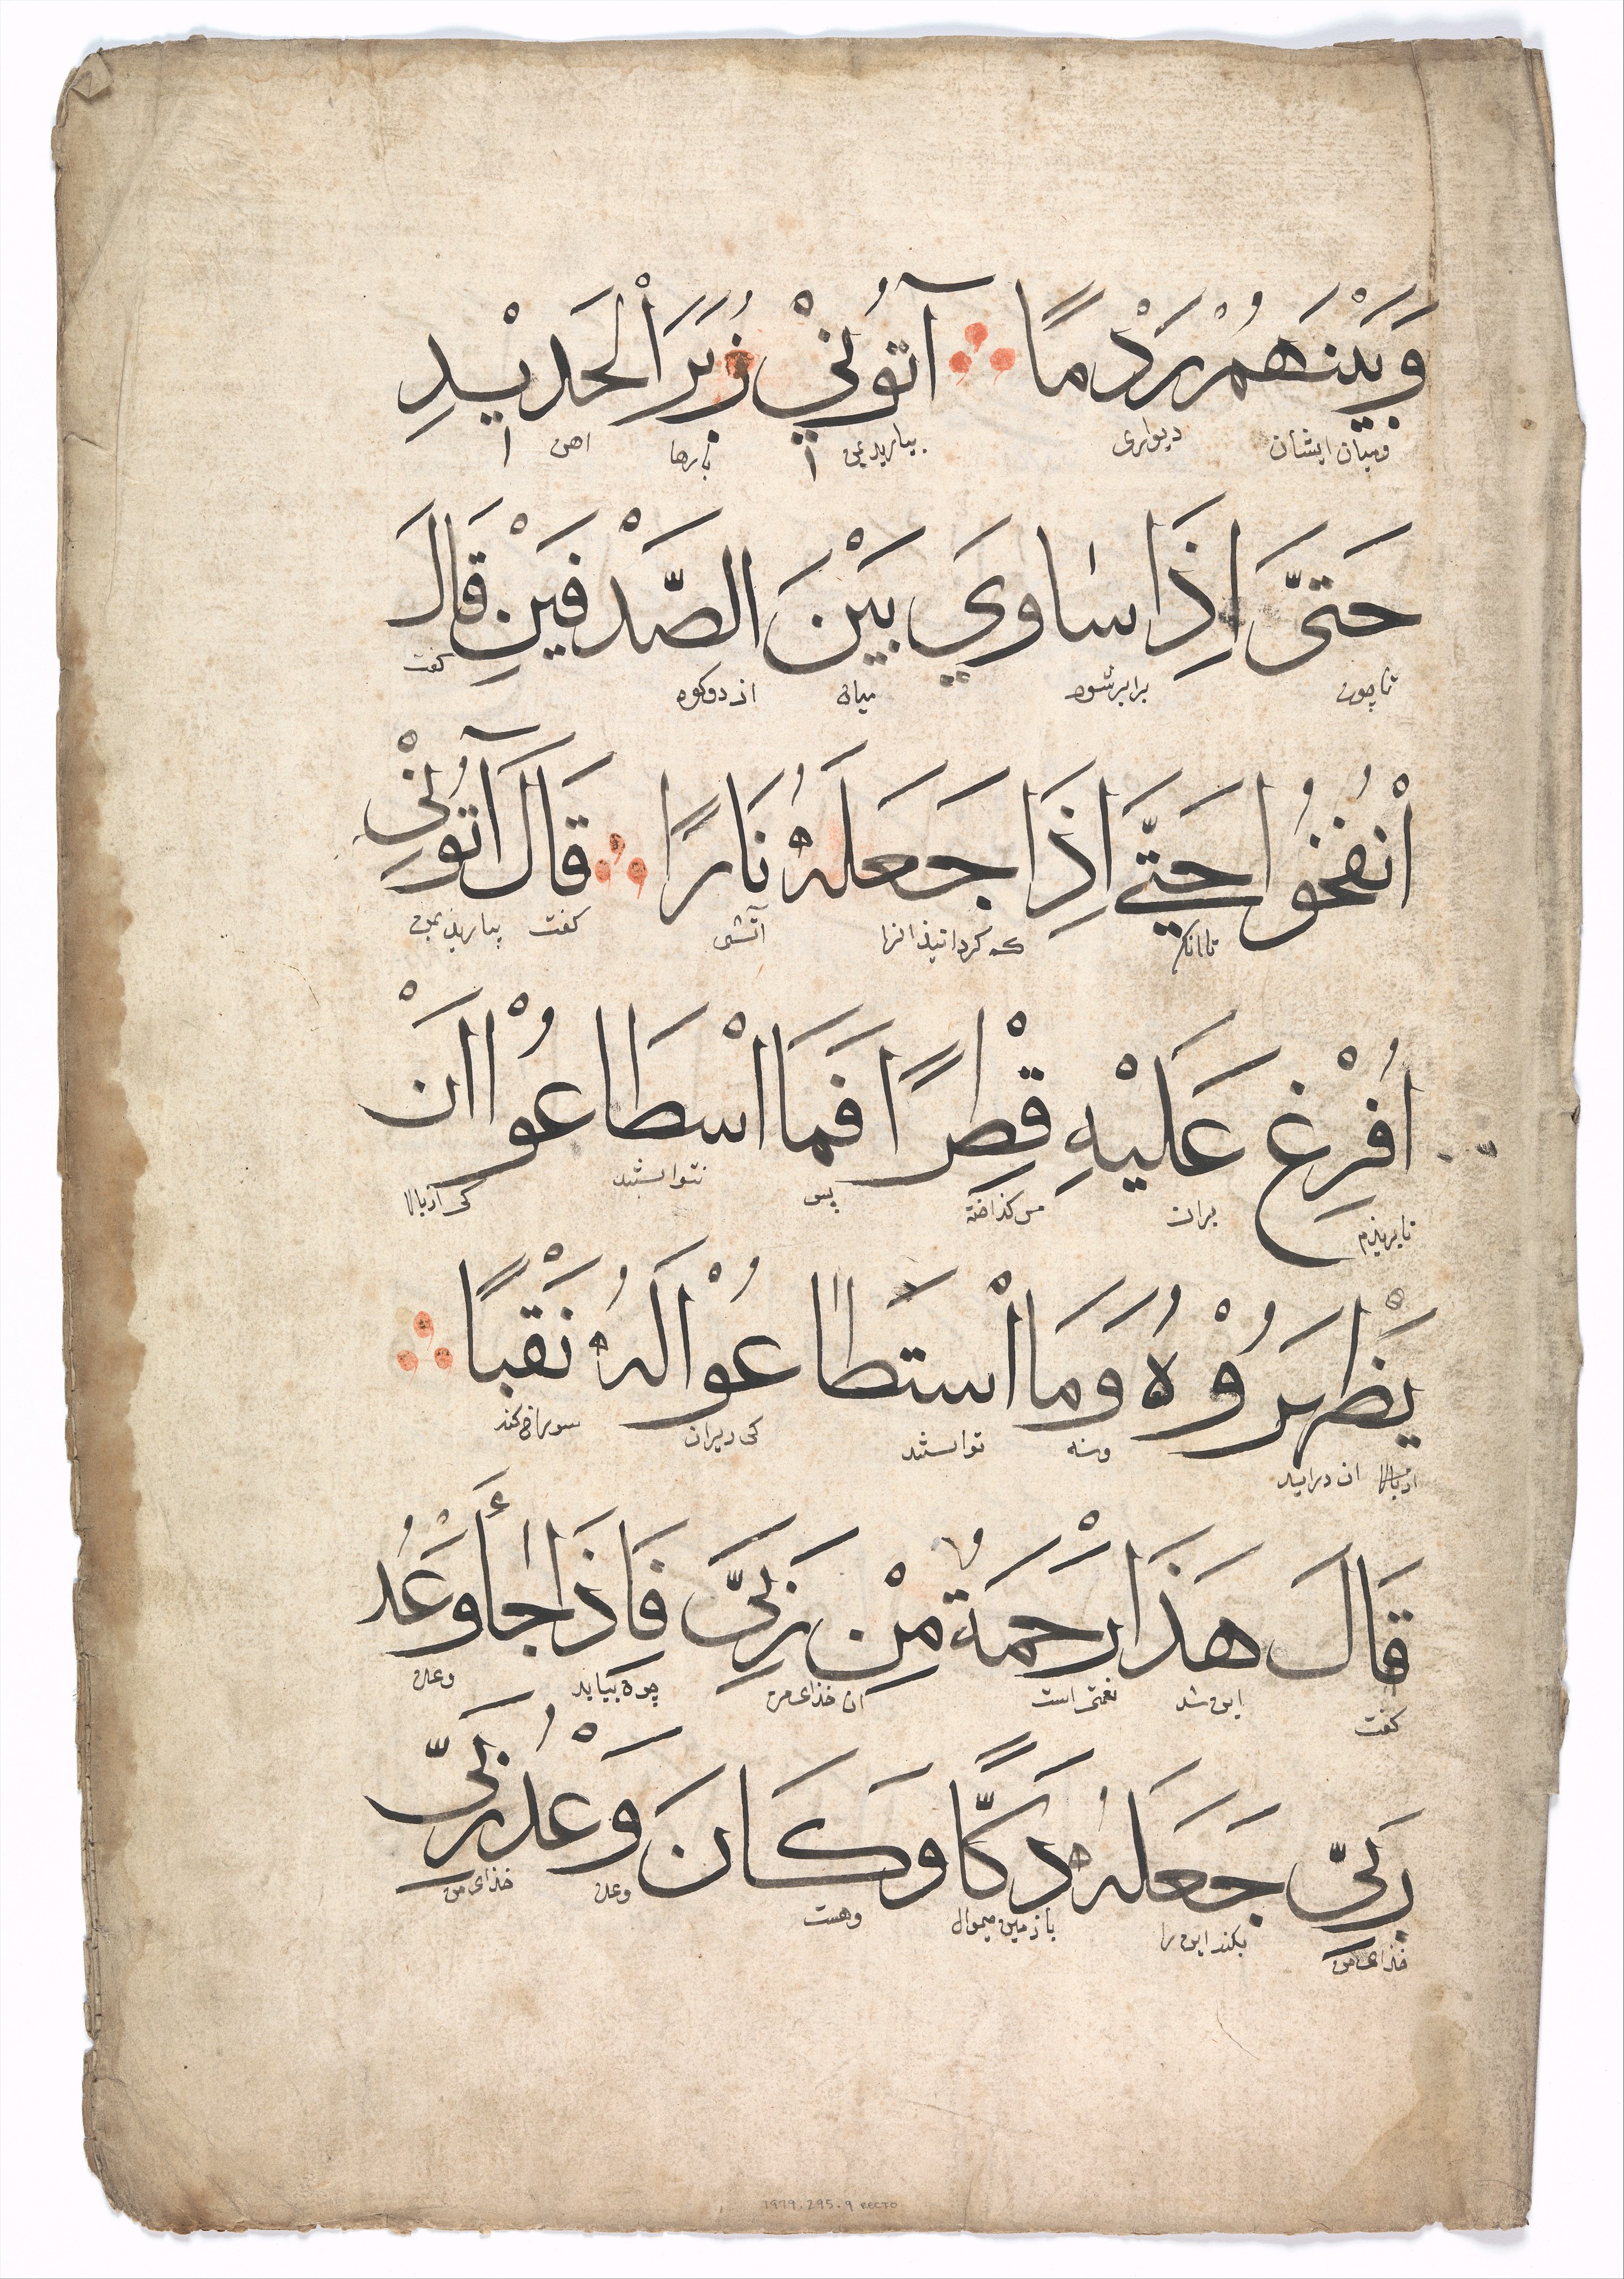 وَبَيْنَهُمْ رَدْمًا آتُوْنِيْ زُبَرَ الْحَدِيْدِ
وميان ايشان ديوارى بياريد بمن پارها اهن
حَتَّى اِذَا سَاوَي بَيْنَ الصَّدْفَيْنِ قَالَ
تا چون برابر شود ميان ان دو كوه كفت
اْنْفُخُوا حَتَّي اِذَا جَعَلَهُ نَارًا قَالَ آتُوْنِيْ
كه كردانيذ انرا آتش كفت بياريذ بمن
اُفْرِغْ عَلَيْهِ قِطْرًا فَمَا اسْطَاعُوْا اَنْ
تا بريزم بران مس كذاخته پس نتوانستند كى از بالا
يَظْهَرُوْهُ وَمَا اسْتَطَاعُوْا لَهُ نَقْبًا
ان درايند ونه توانستند كى دران سوراخ كند
قَالَ هَذَا رَحْمَةٌ مِنْ رَبِّيْ فَاِذَا جَأَ وَعْدُ
كفت اين نعمتى است ان خذاى من چون بيايد وعده
رَبِّيْ جَعَلَهُ دَكًّا وَكَانَ وَعْدُ رَبِّيْ
خذاى من بكند اين را با زمين وهست وعده خذاى من
1979.295.9 RECTO